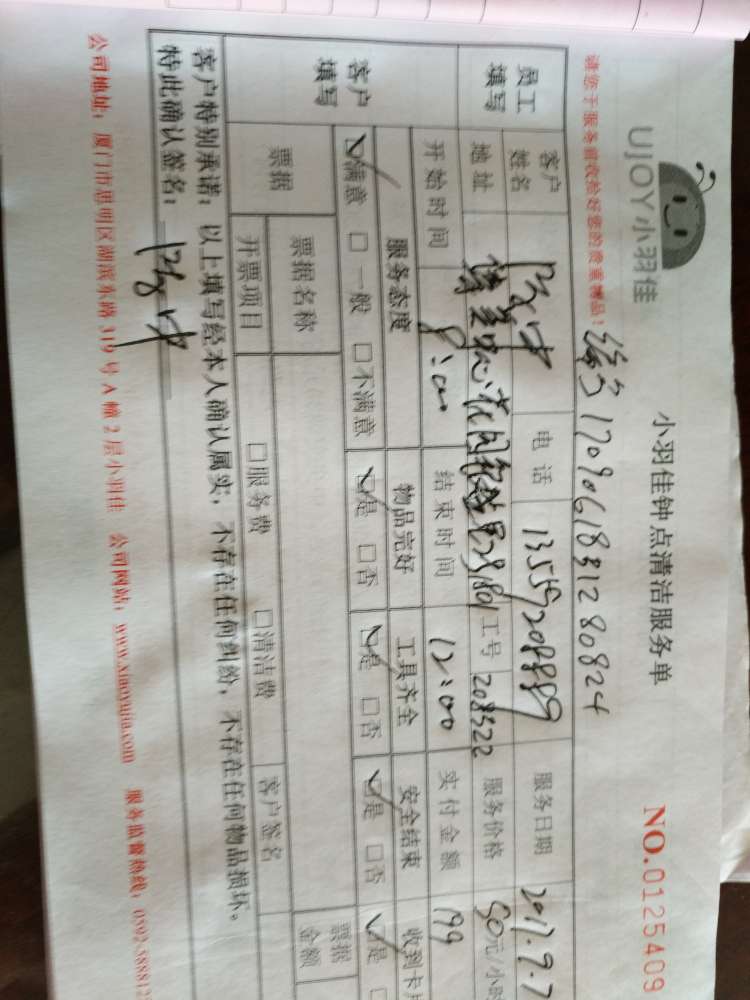 UJOY小羽佳
小羽佳钟点清洁服务单
NO.0125409
请您于服务前收拾好您的贵重物品！
编号 17090618312 80824
员工填写
客户姓名 电话 服务日期 2017.9.7
地址 工号 208322 服务价格 50元/小时
开始时间 8:00 结束时间 12:00 实付金额 199
客户填写
服务态度 物品完好 工具齐全 安全结束 收到卡
☑满意 □一般 □不满意 ☑是 □否 ☑是 □否 ☑是 □否 ☑是 □
票据 票据名称 票据金额
开票项目 □服务费 □清洁费 客户签名
客户特别承诺：以上填写经本人确认属实，不存在任何纠纷，不存在任何物品损坏。
特此确认签名：
公司地址：厦门市思明区湖滨东路 319 号 A 幢 2 层小羽佳 公司网站：www.xiaoyujia.com 服务监督热线：0592-588812